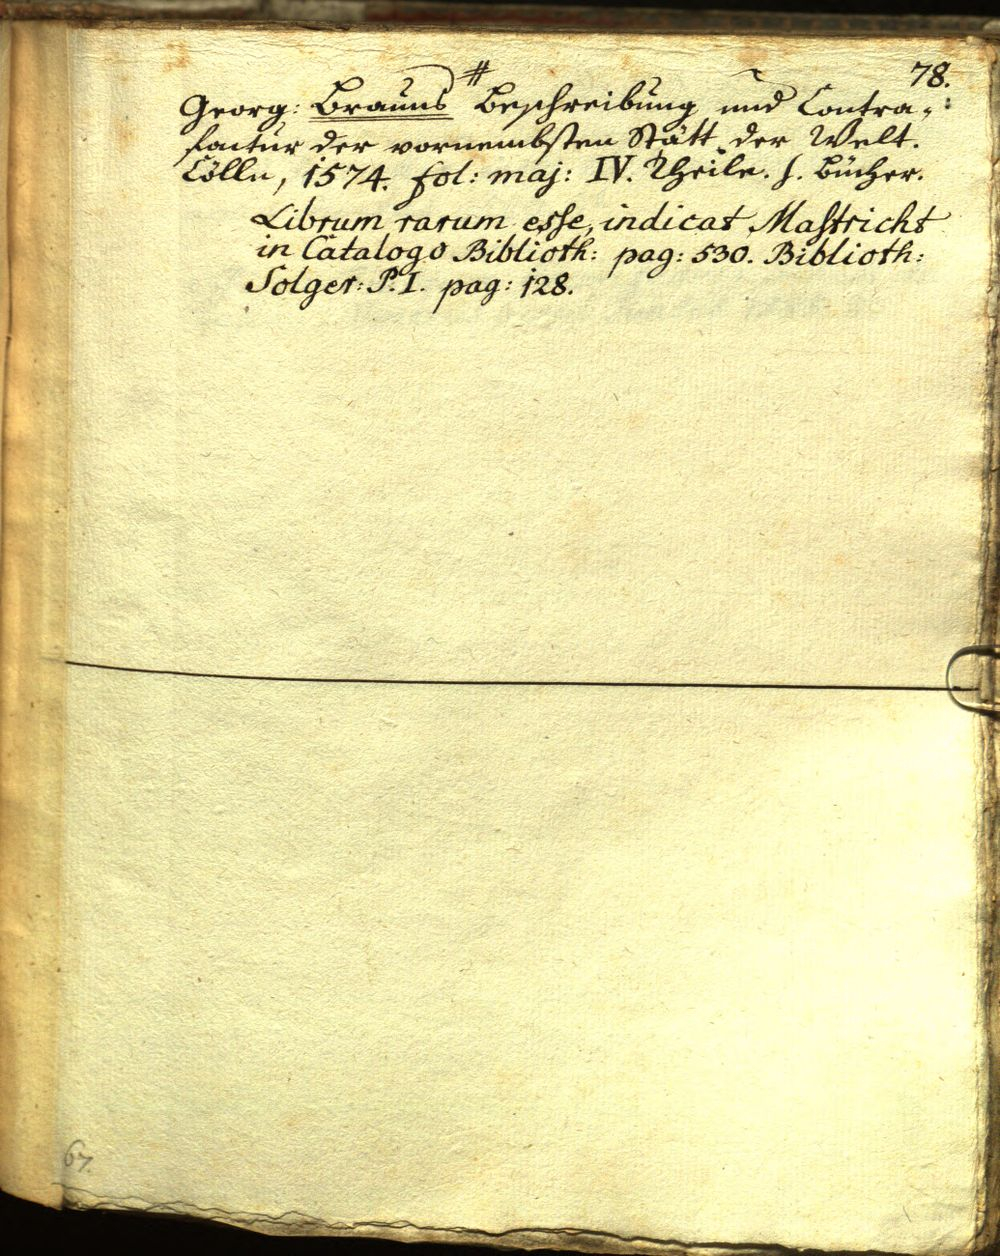 78.
#
Georg: Brauns Beschreibung und Contra-
factur der vornembsten Stätt der Welt.
Cölln, 1574. fol: maj: IV. Theile. s. Bücher.
Librum rarum esse, indicat Mastricht
in Catalogo Biblioth: pag: 530. Biblioth:
Solger: P. I. pag: 128.
67.